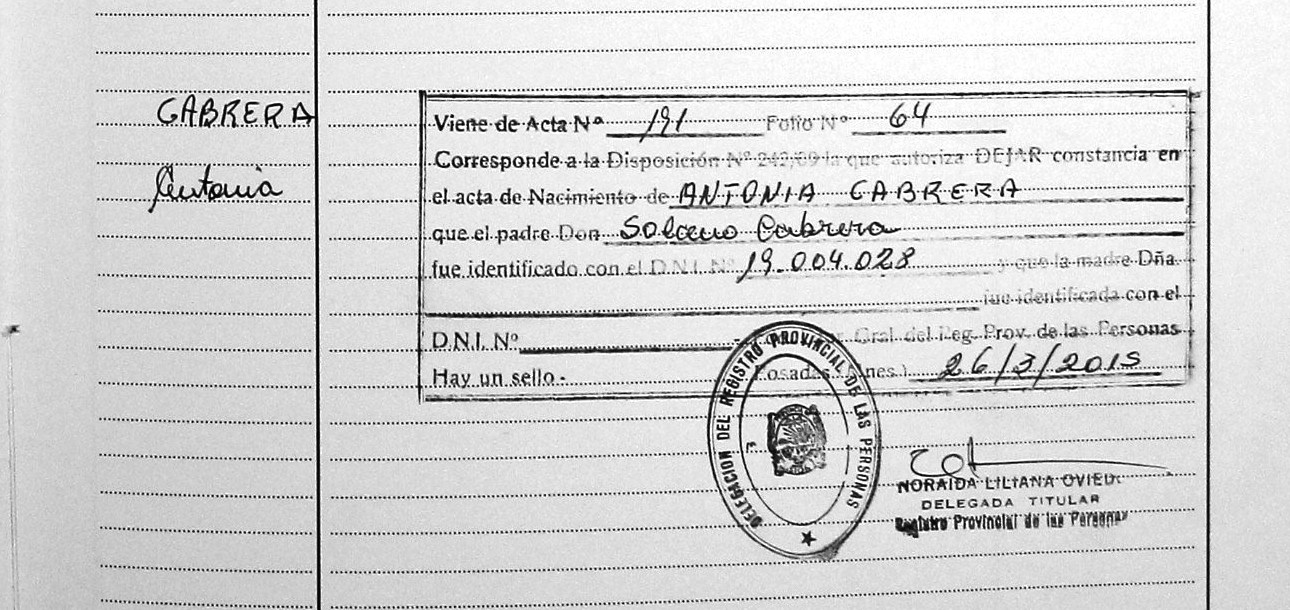 CABRERA
Antonia
Viene de Acta Nº 191 Folio Nº 64
Corresponde a la Disposición Nº 242/09 la que autoriza DEJAR constancia en
el acta de Nacimiento de ANTONIA CABRERA
que el padre Don Solano Cabrera
fue identificado con el D.N.I. Nº 19.004.028 y que la madre Dña.
fue identificada con el
D.N.I. Nº Gral. del Reg. Prov. de las Personas
Hay un sello.- Posadas (Mnes.) 26/3/2015
DELEGACION DEL REGISTRO PROVINCIAL DE LAS PERSONAS
NORAIDA LILIANA OVIED
DELEGADA TITULAR
Registro Provincial de las Personas